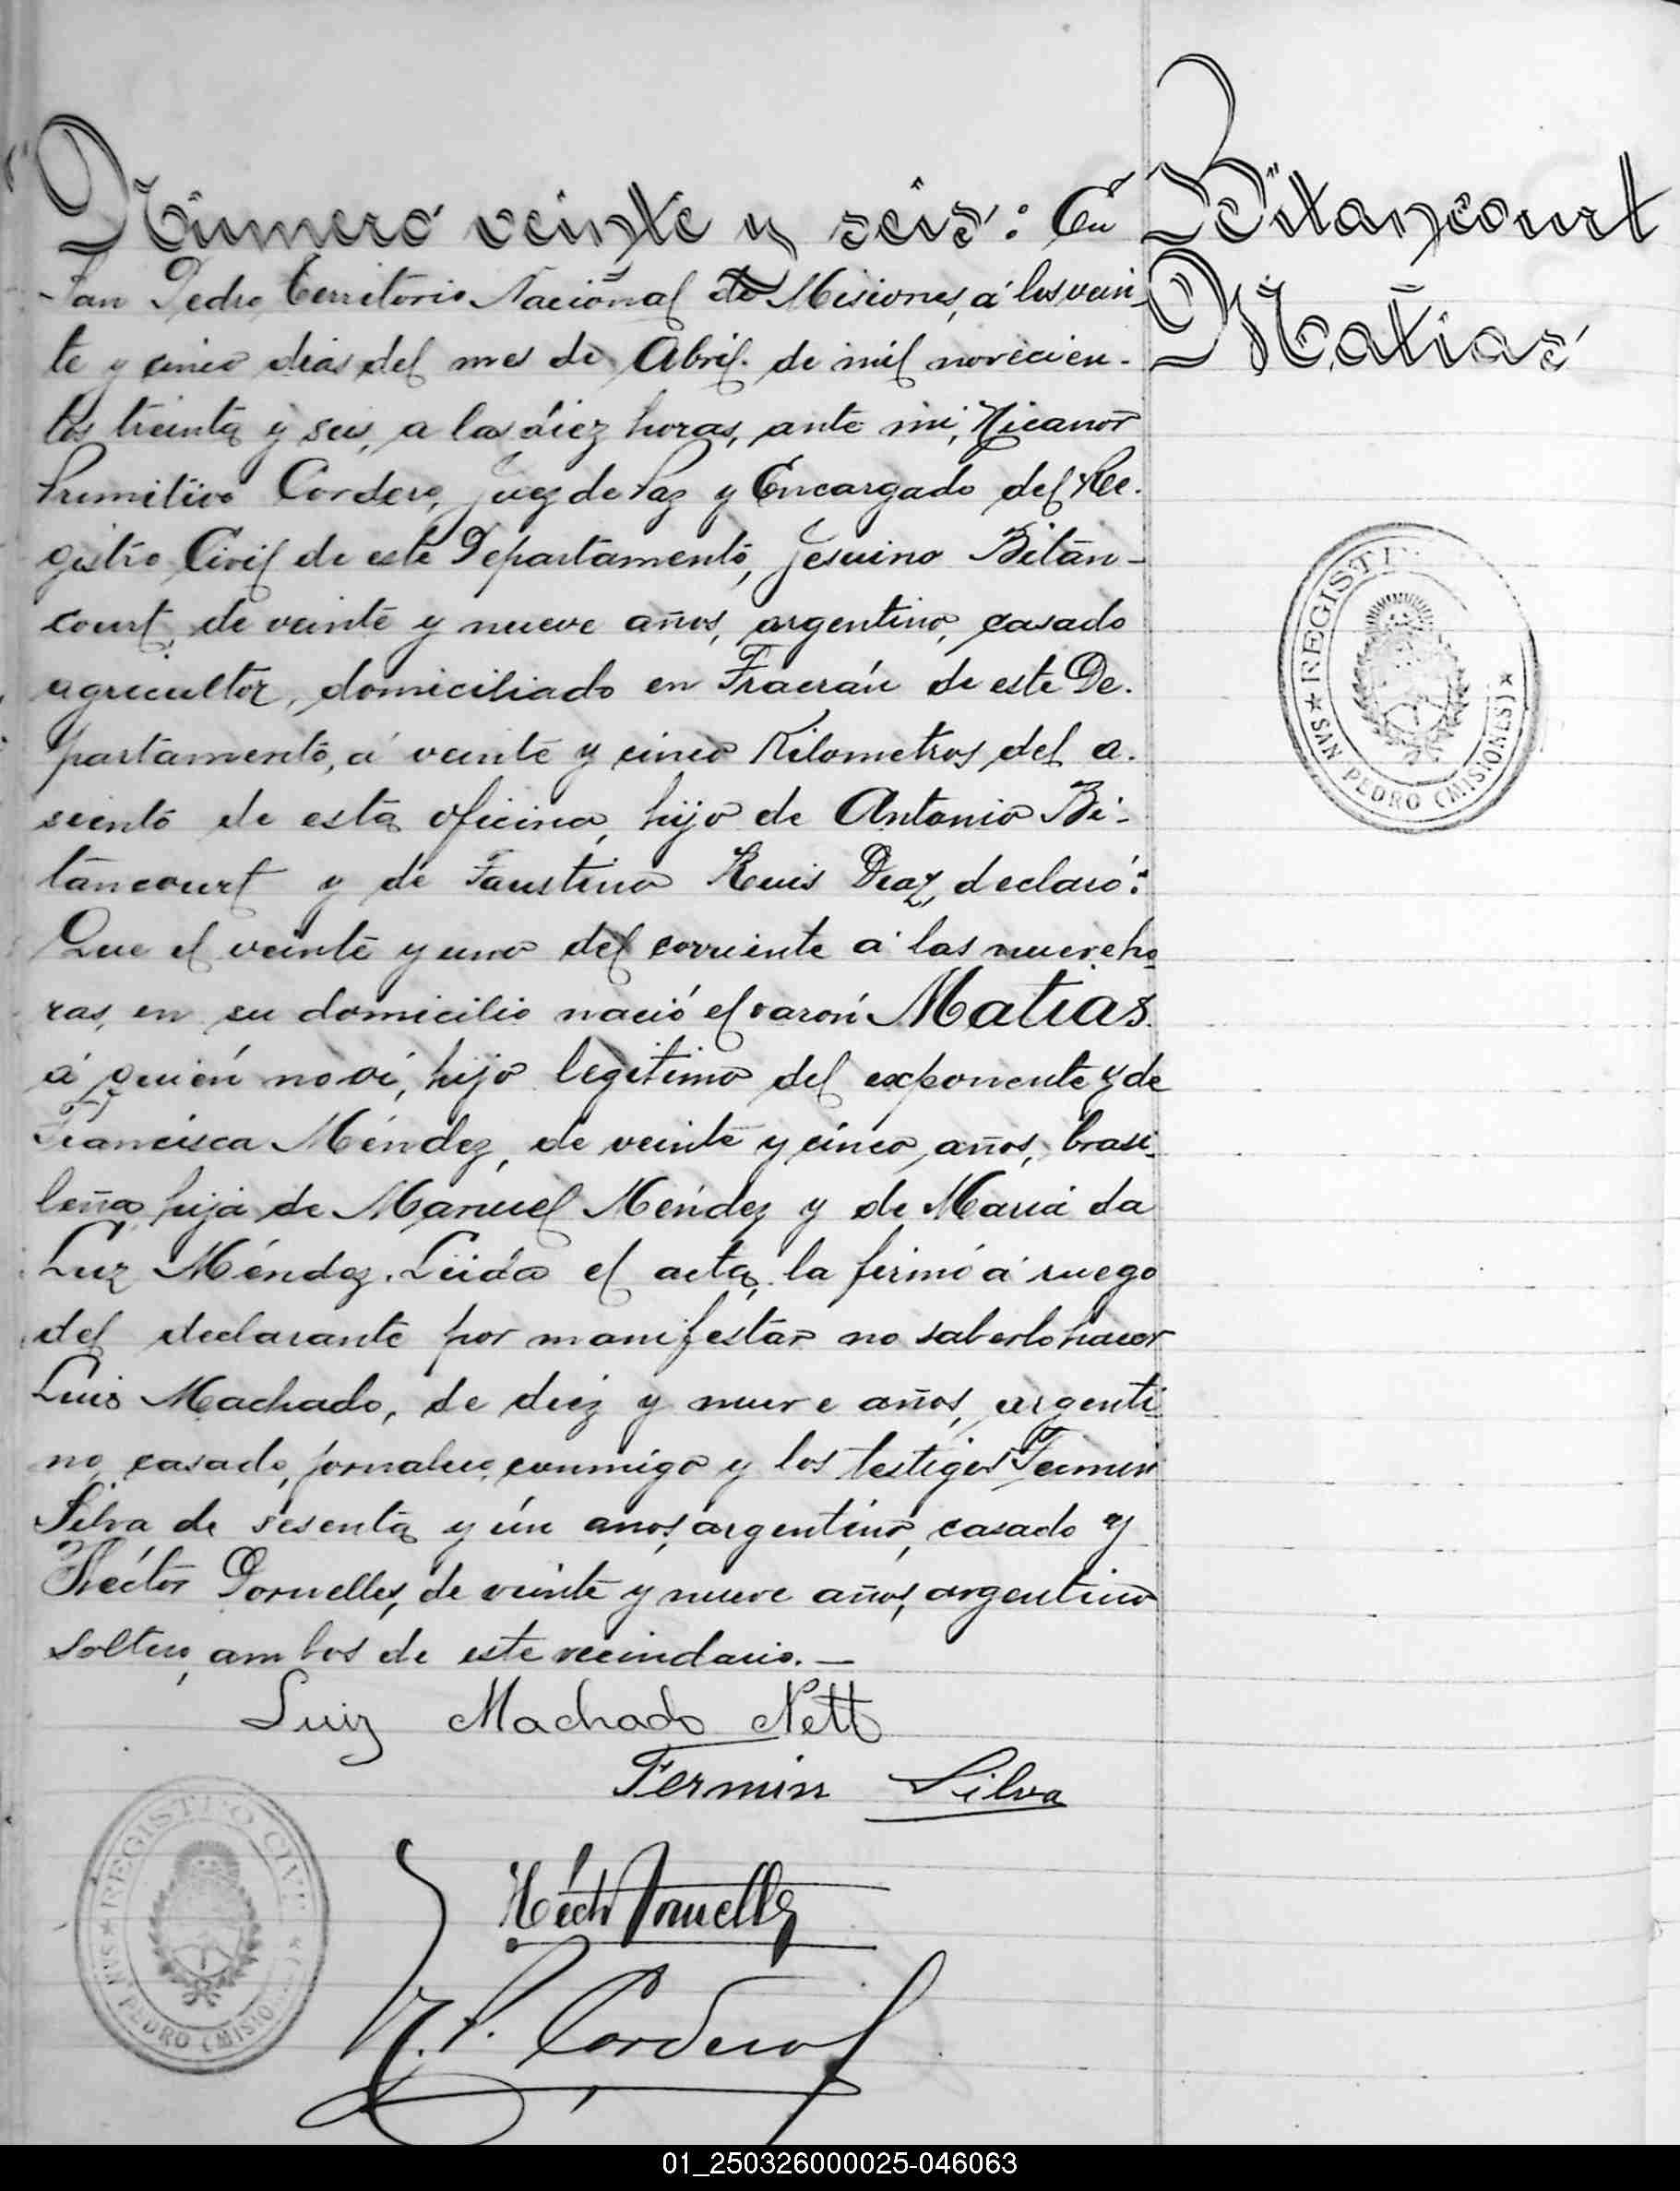 Número veinte y seis: En
San Pedro, Territorio Nacional de Misiones, á los vein-
te y cinco dias del mes de Abril de mil novecien-
tos treinta y seis, a las diez horas, ante mi, Nicanor
Primitivo Cordero, Juez de Paz y Encargado del Re-
gistro Civil de este Departamento, Jesuino Bitan-
court, de veinte y nueve años, argentino, casado
agricultor, domiciliado en Fracrán de este De-
partamento, á veinte y cinco Kilometros del a-
siento de esta oficina, hijo de Antonio Bi-
tancourt y de Faustina Ruis Diaz, declaró:
Que el veinte y uno del corriente á las nueve ho-
ras, en su domicilio nació el varón Matias
á quién no ví, hijo legitimo del exponente y de
Francisca Méndez, de veinte y cinco años, brasi-
leña, hija de Manuel Méndez y de Maria da
Luz Méndez. Leida el acta, la firmó á ruego
del declarante por manifestar no saberlo hacer
Luis Machado, de diez y nueve años, argenti-
no, casado, jornalero, conmigo y los testigos Fermin
Silva de sesenta y ún años, argentino, casado y
Héctor Dornelles, de veinte y nueve años, argentino
soltero, ambos de este vecindario.—
Luiz Machado Nett
Fermin Silva
Héctor Dornelles
N. P. Cordero
Bitancourt
Matias
REGISTR
★ SAN PEDRO (MISIONES) ★
REGISTRO CIVIL
★ SAN PEDRO (MISIO
01_250326000025-046063